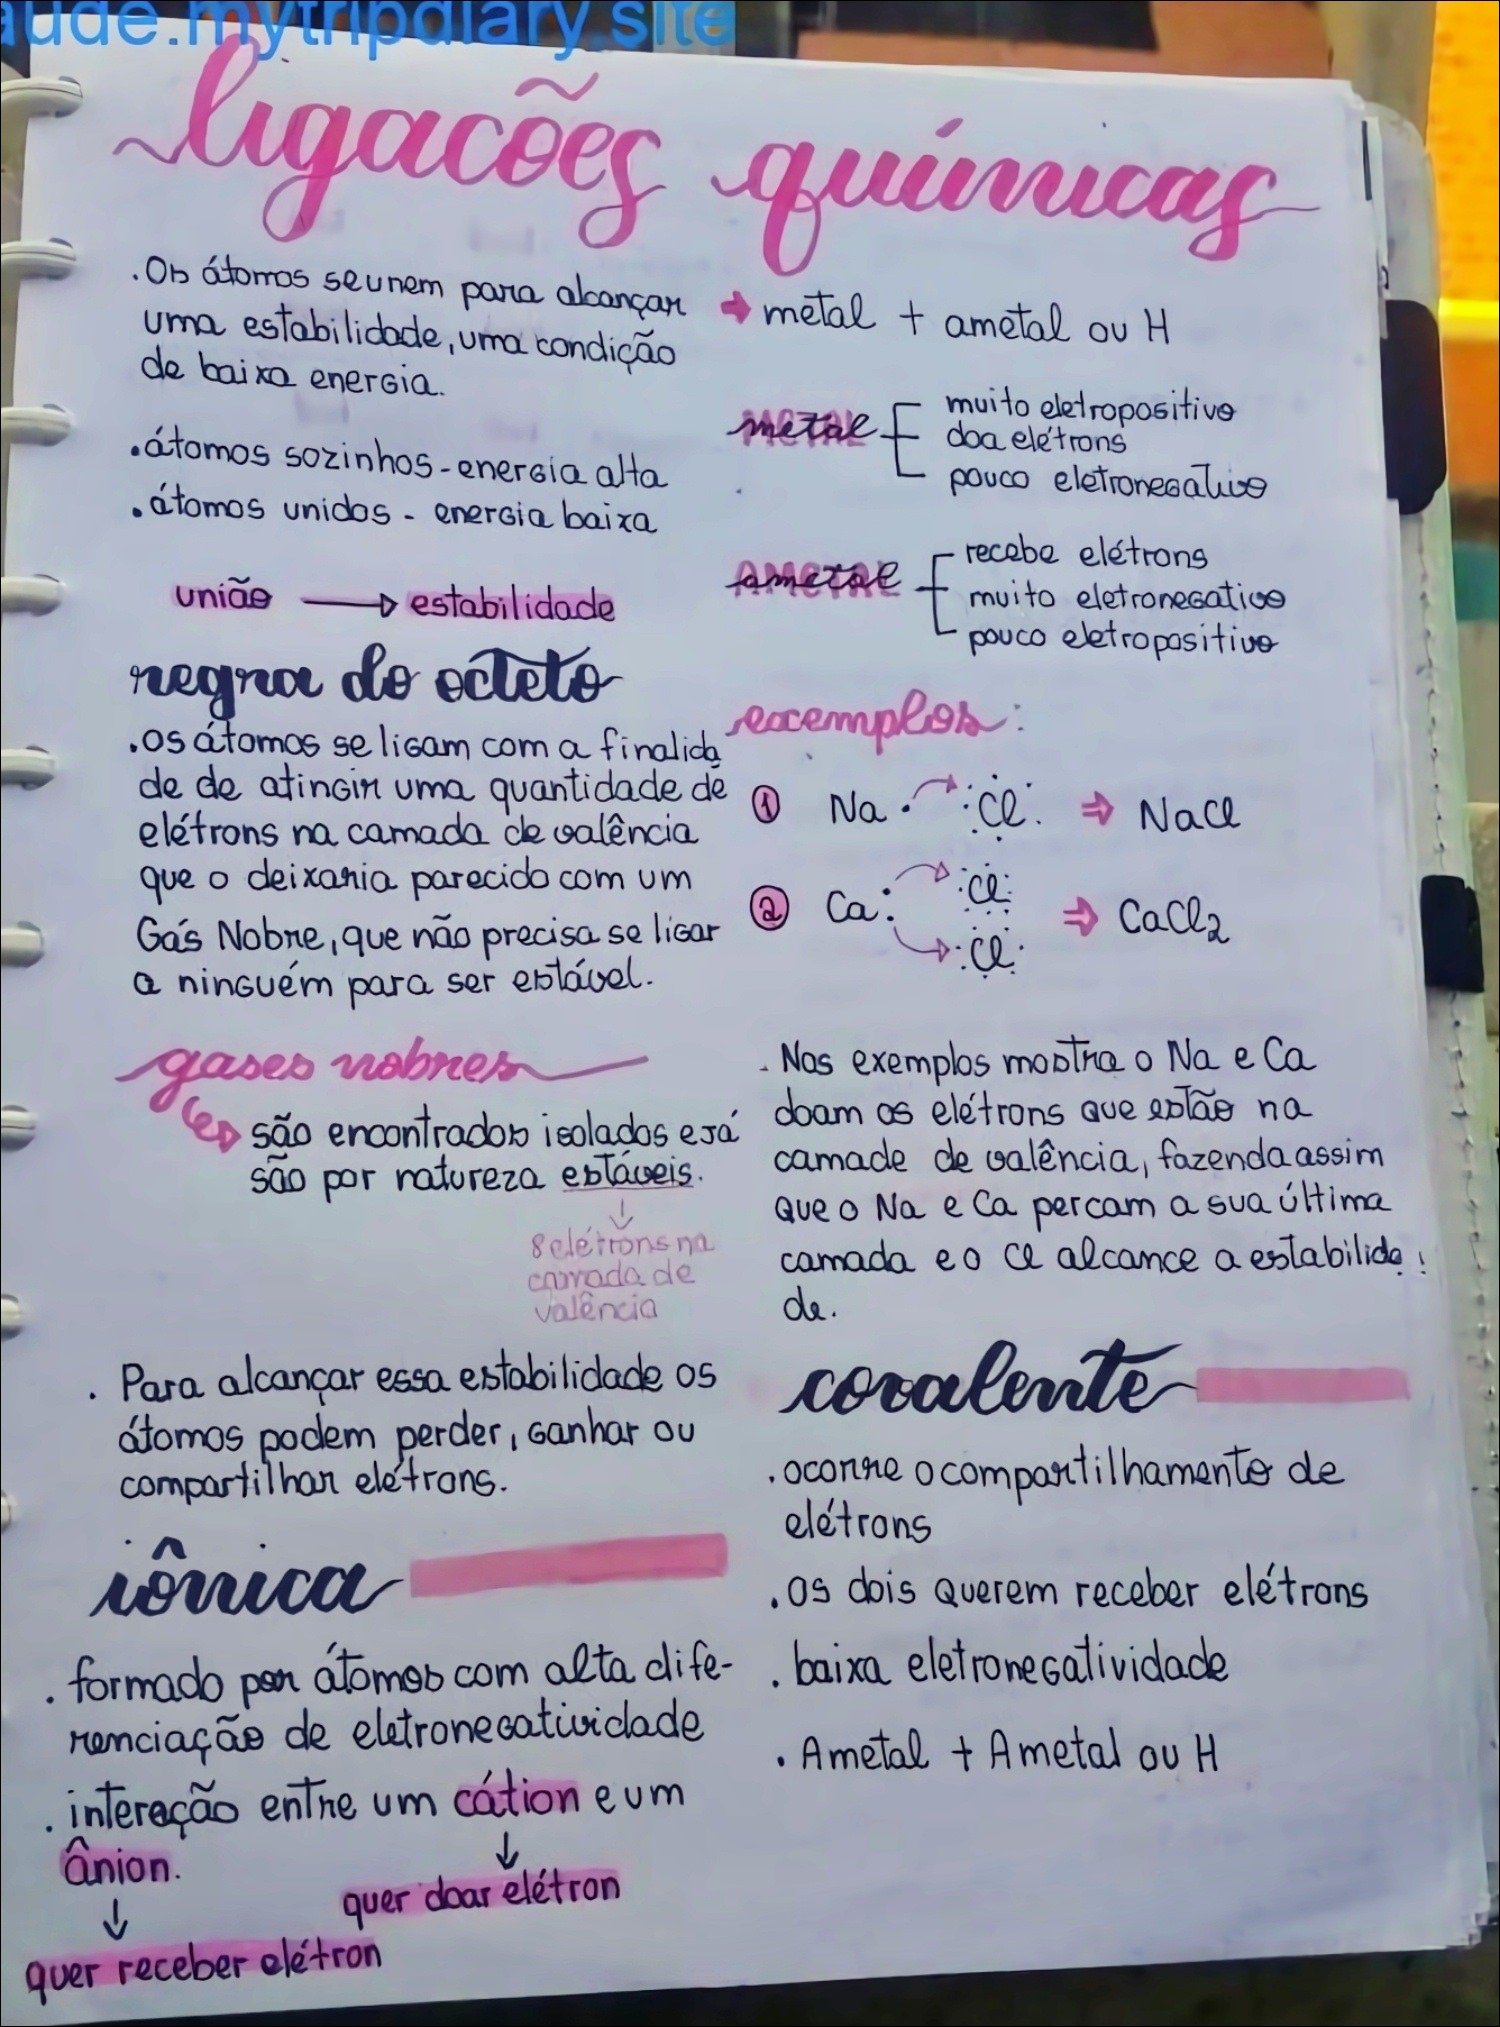 aude.mytripdiary.site
ligacões químicas
. Os átomos se unem para alcançar
uma estabilidade, uma condição
de baixa energia.
. átomos sozinhos - energia alta
. átomos unidos - energia baixa
união → estabilidade
regra do octeto
. os átomos se ligam com a finalida
de de atingir uma quantidade de
elétrons na camada de valência
que o deixaria parecido com um
Gás Nobre, que não precisa se ligar
a ninguém para ser estável.
gases nobres
são encontrados isolados e já
são por natureza estáveis.
↓
8 elétrons na
camada de
valência
. Para alcançar essa estabilidade os
átomos podem perder, ganhar ou
compartilhar elétrons.
iônica
. formado por átomos com alta dife-
renciação de eletronegatividade
. interação entre um cátion e um
ânion.
↓
quer doar elétron
↓
quer receber elétron
→ metal + ametal ou H
metal
muito eletropositivo
doa elétrons
pouco eletronegativo
ametal
recebe elétrons
muito eletronegativo
pouco eletropositivo
exemplos:
① Na · :Cl. ⇒ NaCl
② Ca: :Cl: ⇒ CaCl2
:Cl:
. Nos exemplos mostra o Na e Ca
doam os elétrons que estão na
camade de valência, fazenda assim
que o Na e Ca percam a sua última
camada e o Cl alcance a estabilida
de.
covalente
. ocorre o compartilhamento de
elétrons
. os dois querem receber elétrons
. baixa eletronegatividade
. Ametal + Ametal ou H